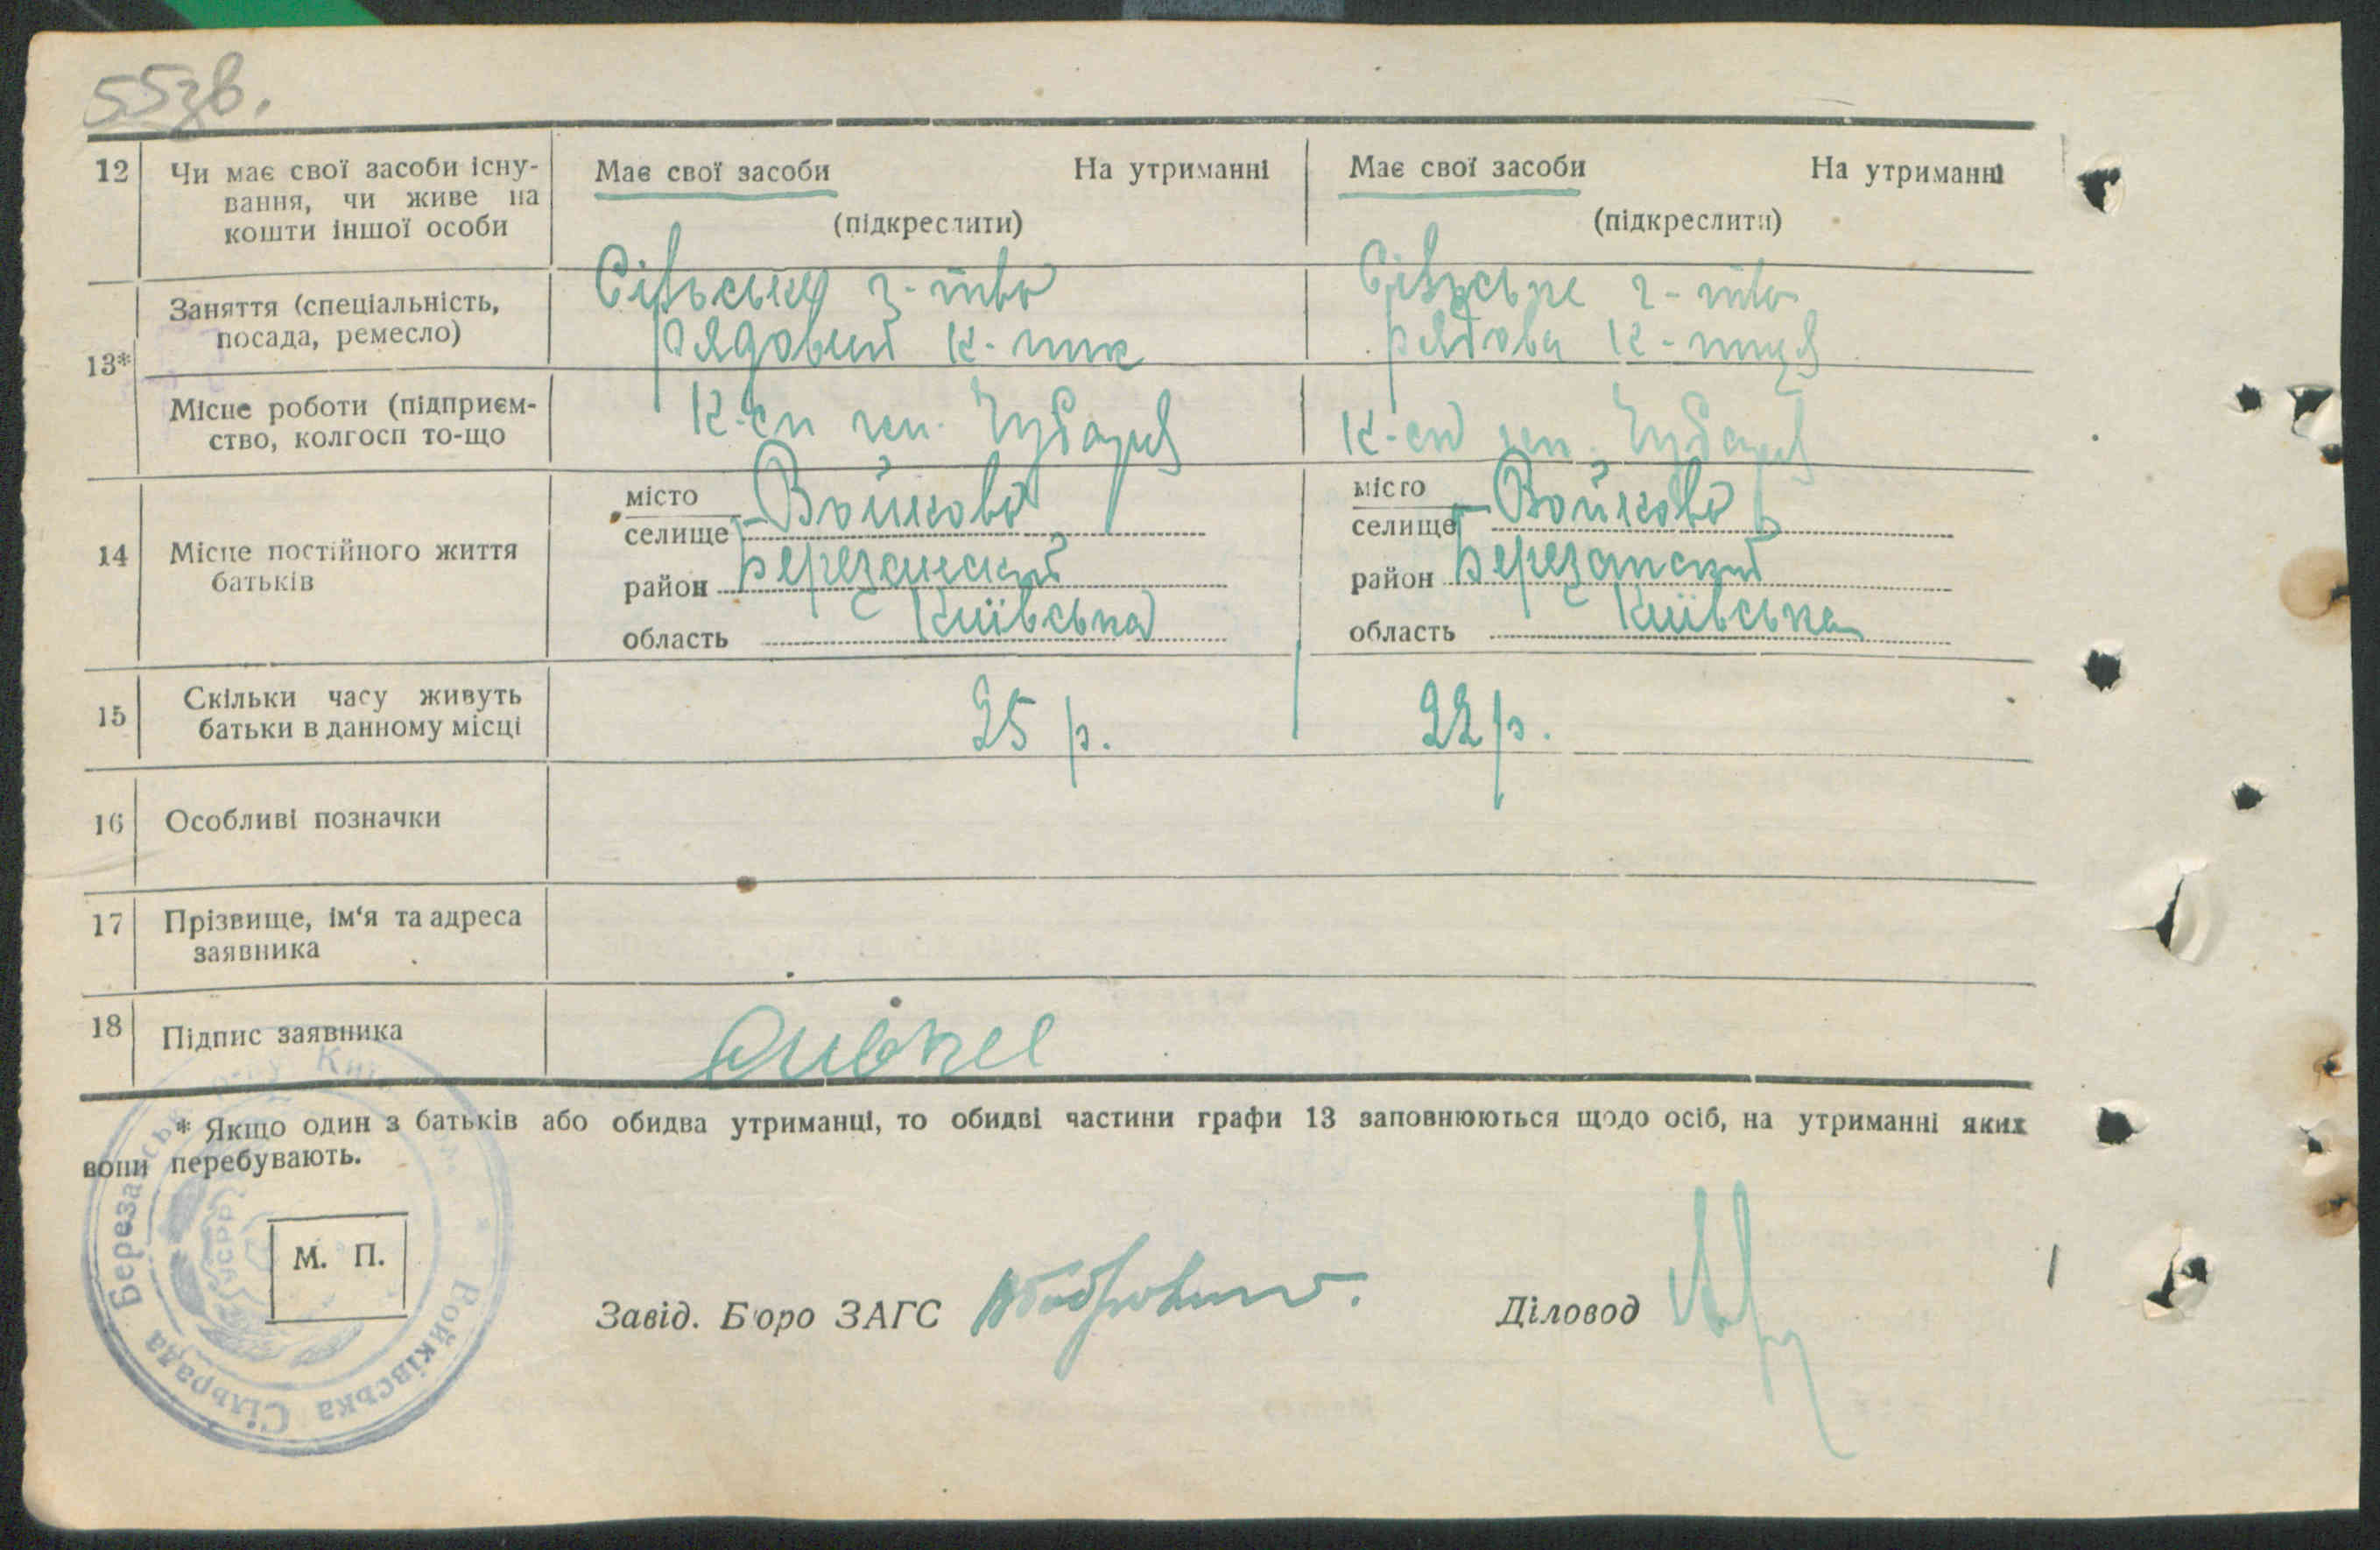 55зв.
12 Чи має свої засоби існу-
вання, чи живе на
кошти іншої особи
Має свої засоби На утриманні
(підкреслити)
Має свої засоби На утриманні
(підкреслити)
13*
Заняття (спеціальність,
посада, ремесло)
Сільське г-тво
рядовий к-ник
Сільське г-тво
рядова к-ниця
Місце роботи (підприєм-
ство, колгосп то-що
К-сп ім. Чубаря
К-сп ім. Чубаря
14 Місце постійного життя
батьків
місто
селище Войково
район Березанский
область Київська
місто
селище Войково
район Березанский
область Київська
15 Скільки часу живуть
батьки в данному місці
25 р.
22 р.
16 Особливі позначки
17 Прізвище, ім'я та адреса
заявника
18 Підпис заявника
* Якщо один з батьків або обидва утриманці, то обидві частини графи 13 заповнюються щодо осіб, на утриманні яких
вони перебувають.
М. П.
Войківська Сільрада Березанськ
УСРР
Завід. Бюро ЗАГС
Діловод